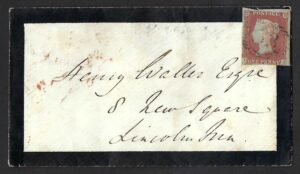 POSTAGE
ONE PENNY
Henry Waller Esqre
8 New Square
Lincolns Inn